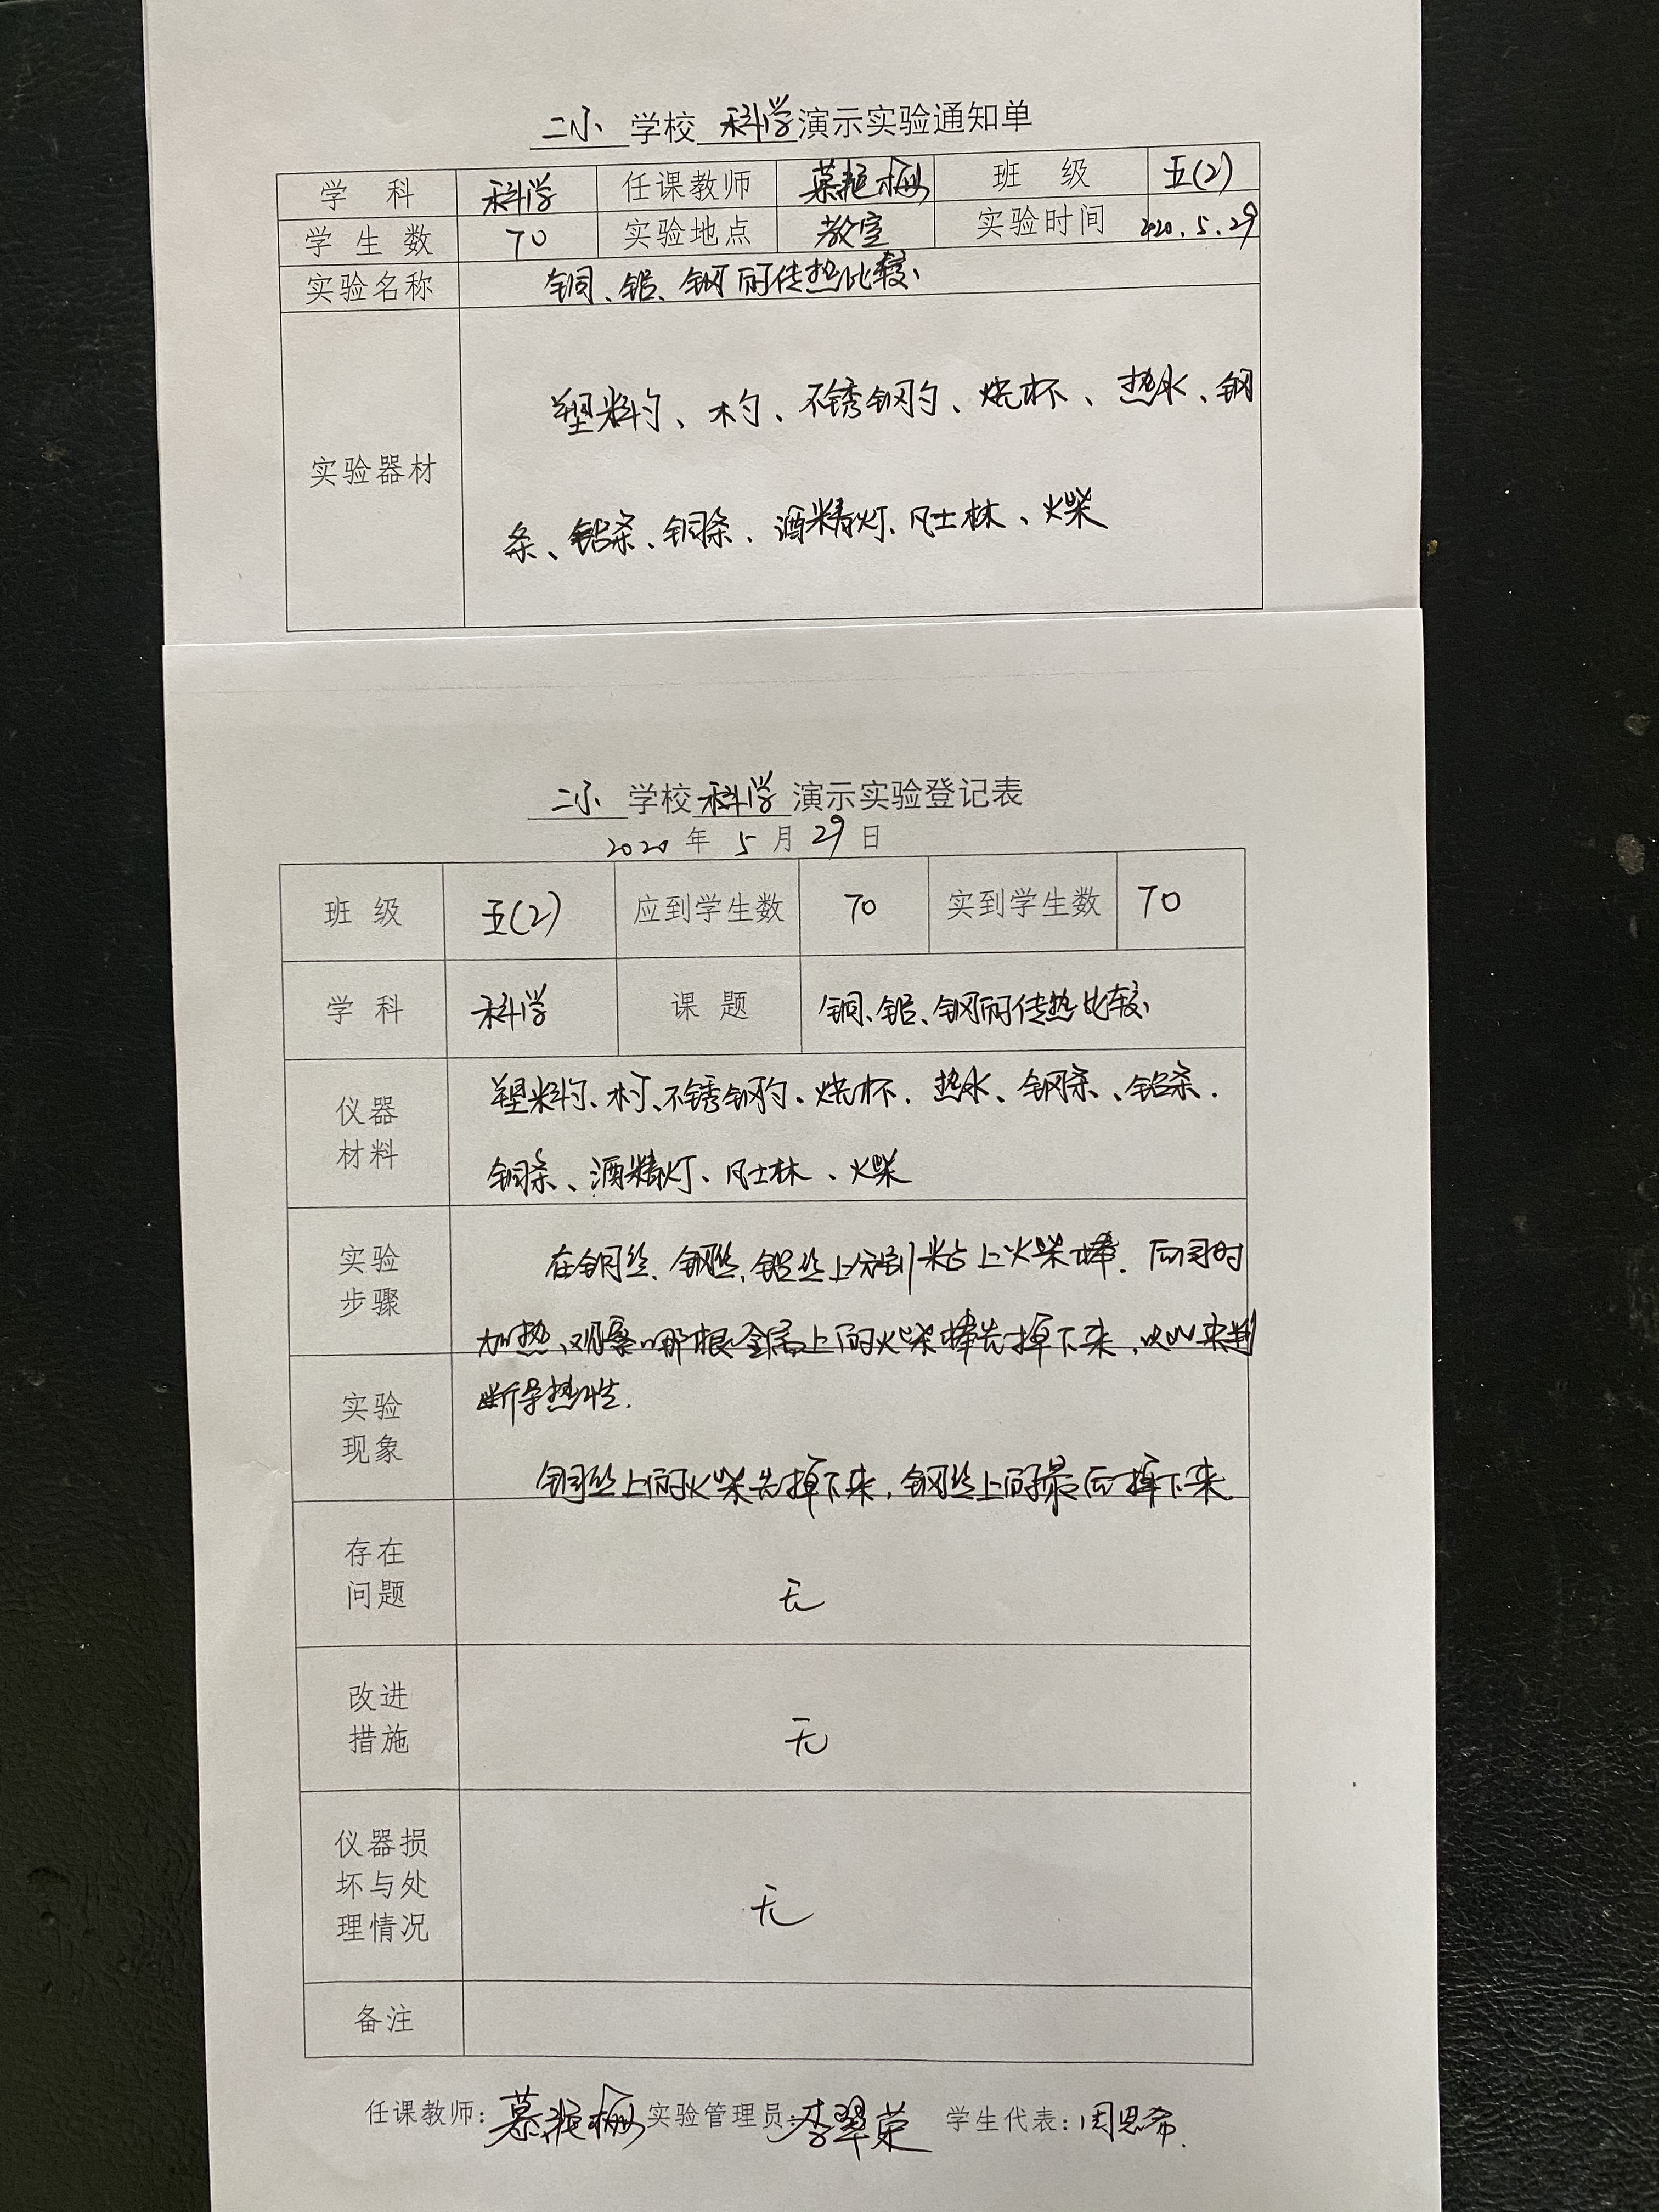 二小 学校 科学 演示实验通知单
学 科 科学 任课教师 慕艳梅 班 级 五(2)
学 生 数 70 实验地点 教室 实验时间 2020.5.29
实验名称 铜、铝、钢的传热比较
塑料勺、木勺、不锈钢勺、烧杯、热水、钢
实验器材
条、铝条、铜条、酒精灯、凡士林、火柴
二小 学校 科学 演示实验登记表
2020 年 5 月 29 日
班 级 五(2) 应到学生数 70 实到学生数 70
学 科 科学 课 题 铜、铝、钢的传热比较
仪器
材料
塑料勺、木勺、不锈钢勺、烧杯、热水、钢条、铝条、
铜条、酒精灯、凡士林、火柴
实验
步骤
在铜丝、钢丝、铝丝上分别粘上火柴棒.后同时
加热,观察哪根金属上的火柴棒先掉下来,以此来判
断导热性.
实验
现象
铜丝上的火柴先掉下来,钢丝上的最后掉下来.
存在
问题
无
改进
措施
无
仪器损
坏与处
理情况
无
备注
任课教师:慕艳梅 实验管理员:李翠荣 学生代表:周思希